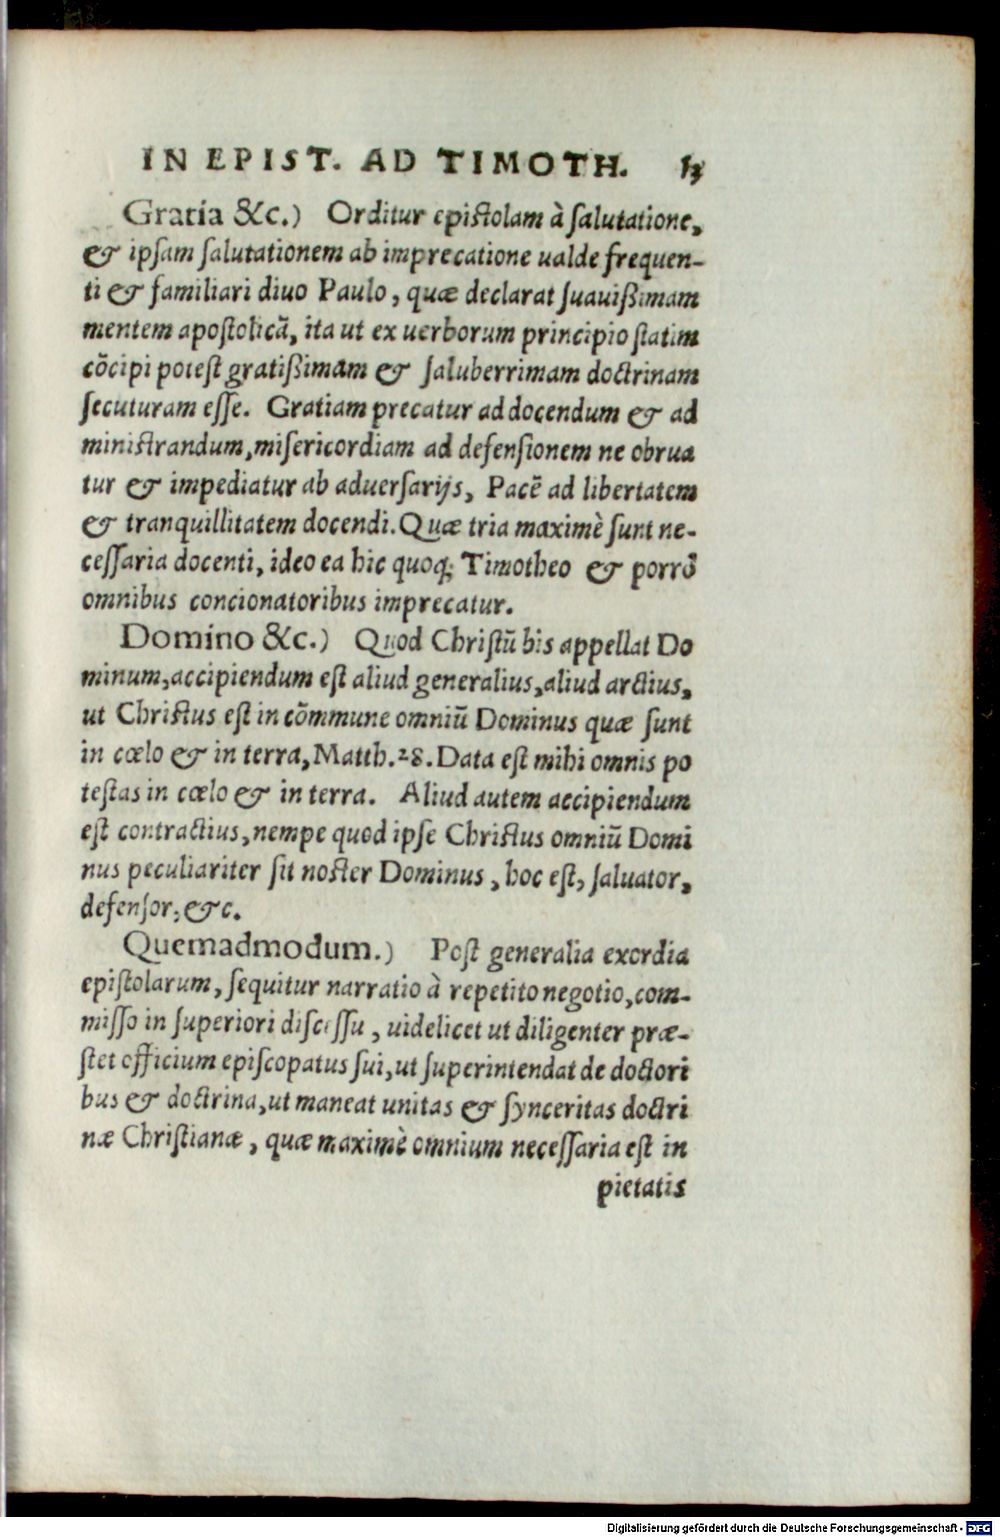 IN EPIST. AD TIMOTH. 13
Gratia &c.) Orditur epistolam à salutatione,
& ipsam salutationem ab imprecatione ualde frequen-
ti & familiari diuo Paulo, quæ declarat suauißimam
mentem apostolicā, ita ut ex uerborum principio statim
cōcipi potest gratißimam & saluberrimam doctrinam
secuturam esse. Gratiam precatur ad docendum & ad
ministrandum, misericordiam ad defensionem ne obrua
tur & impediatur ab aduersarijs, Pacē ad libertatem
& tranquillitatem docendi. Quæ tria maximè sunt ne-
cessaria docenti, ideo ea hic quoq; Timotheo & porrò
omnibus concionatoribus imprecatur.
Domino &c.) Quod Christū bis appellat Do
minum, accipiendum est aliud generalius, aliud arctius,
ut Christus est in cōmmune omniū Dominus quæ sunt
in cœlo & in terra, Matth. 28. Data est mihi omnis po
testas in cœlo & in terra. Aliud autem accipiendum
est contractius, nempe quod ipse Christus omniū Domi
nus peculiariter sit noster Dominus, hoc est, saluator,
defensor, &c.
Quemadmodum.) Post generalia exordia
epistolarum, sequitur narratio à repetito negotio, com-
misso in superiori discessu, uidelicet ut diligenter præ-
stet officium episcopatus sui, ut superintendat de doctori
bus & doctrina, ut maneat unitas & synceritas doctri
næ Christianæ, quæ maximè omnium necessaria est in
pietatis
Digitalisierung gefördert durch die Deutsche Forschungsgemeinschaft - DFG